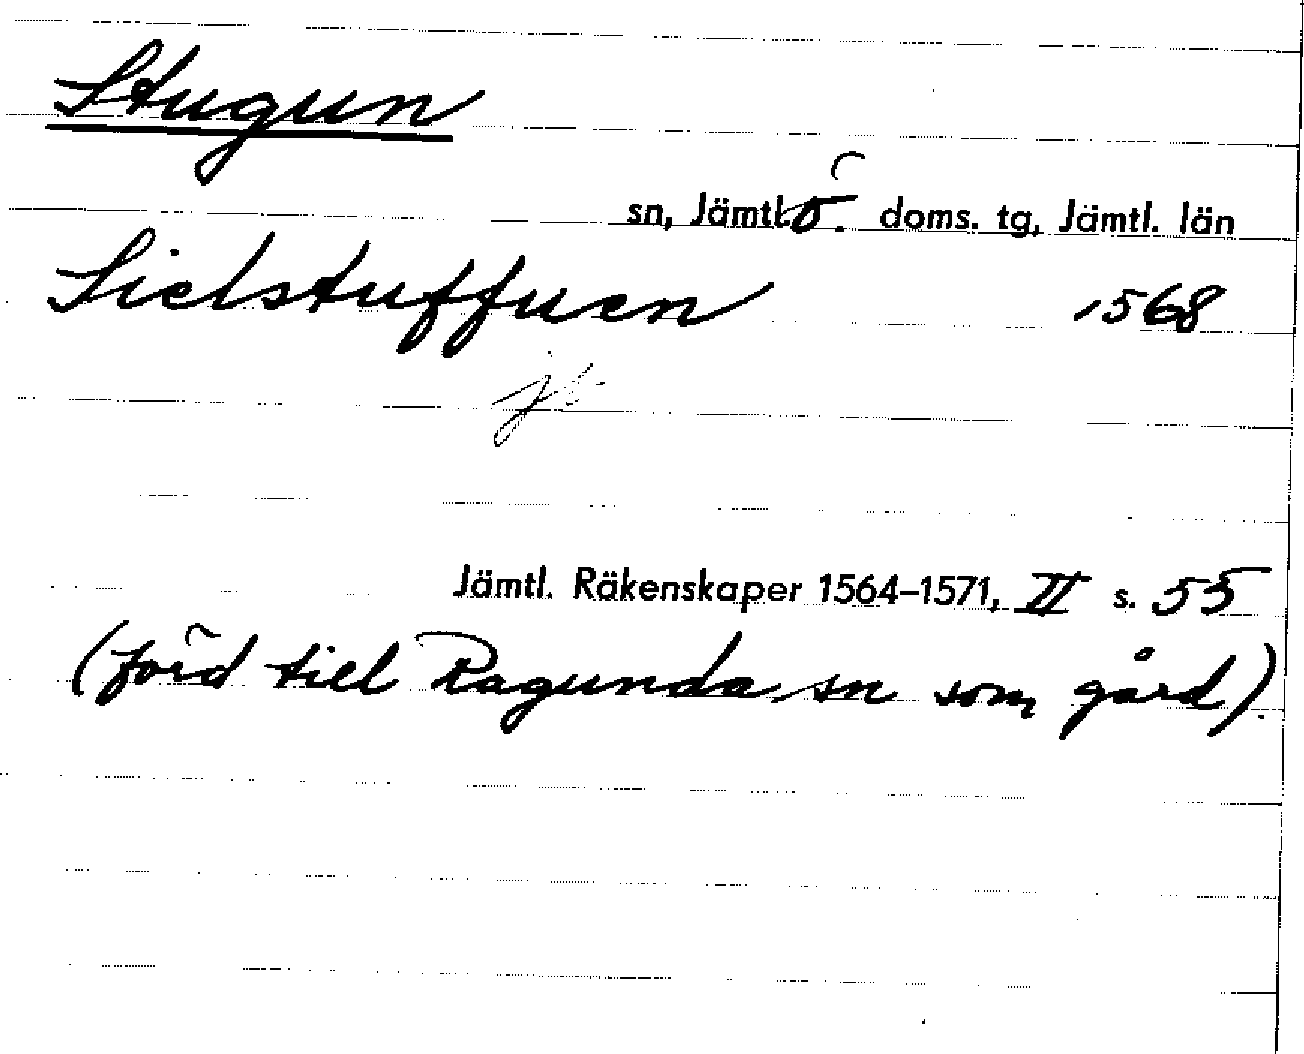 Stugun
sn, Jämtl. ö. doms. tg, Jämtl. län
Sielstuffuen 1568
Jämtl. Räkenskaper 1564–1571, II s. 55
(förd till Ragunda sn som gård).